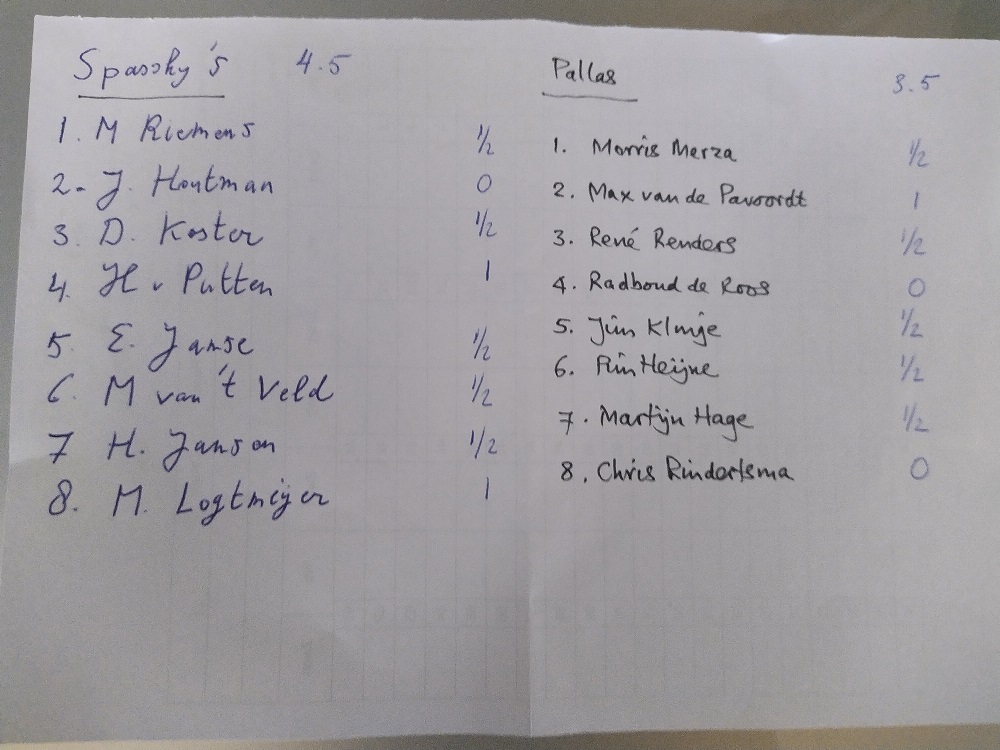 Spassky's 4.5
1. M Riemens 1/2
2. J. Houtman 0
3. D. Koster 1/2
4. H v Putten 1
5. E. Janse 1/2
6. M van 't Veld 1/2
7 H. Janson 1/2
8. M. Logtmeijer 1
Pallas 3.5
1. Morris Merza 1/2
2. Max van de Pavoordt 1
3. René Renders 1/2
4. Radboud de Roos 0
5. Jim Klinge 1/2
6. Heijne 1/2
7. Martijn Hage 1/2
8. Chris Rindertsma 0